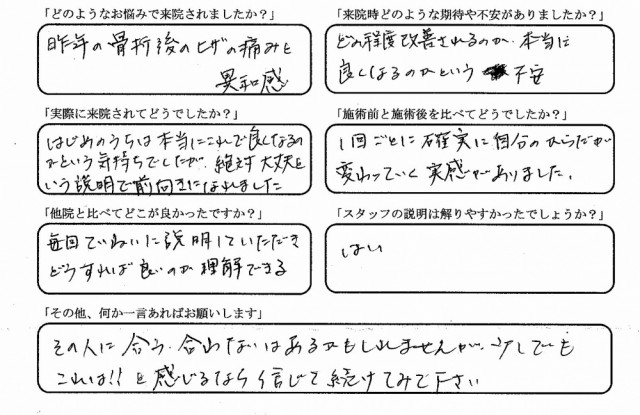 「どのようなお悩みで来院されましたか?」
昨年の骨折後のヒザの痛みと
異和感
「来院時どのような期待や不安がありましたか?」
どの程度改善されるのか、本当に
良くなるのかという不安
「実際に来院されてどうでしたか?」
はじめのうちは本当にこれで良くなるの
かという気持ちでしたが、絶対大丈夫と
いう説明で前向きになれました
「施術前と施術後を比べてどうでしたか?」
1回ごとに確実に自分のからだが
変わっていく実感がありました。
「他院と比べてどこが良かったですか?」
毎回ていねいに説明していただき
どうすれば良いのか理解できる
「スタッフの説明は解りやすかったでしょうか?」
はい
「その他、何か一言あればお願いします」
その人に合う、合わないはあるかもしれませんが、少しでも
これは!!と感じるなら信じて続けてみて下さい